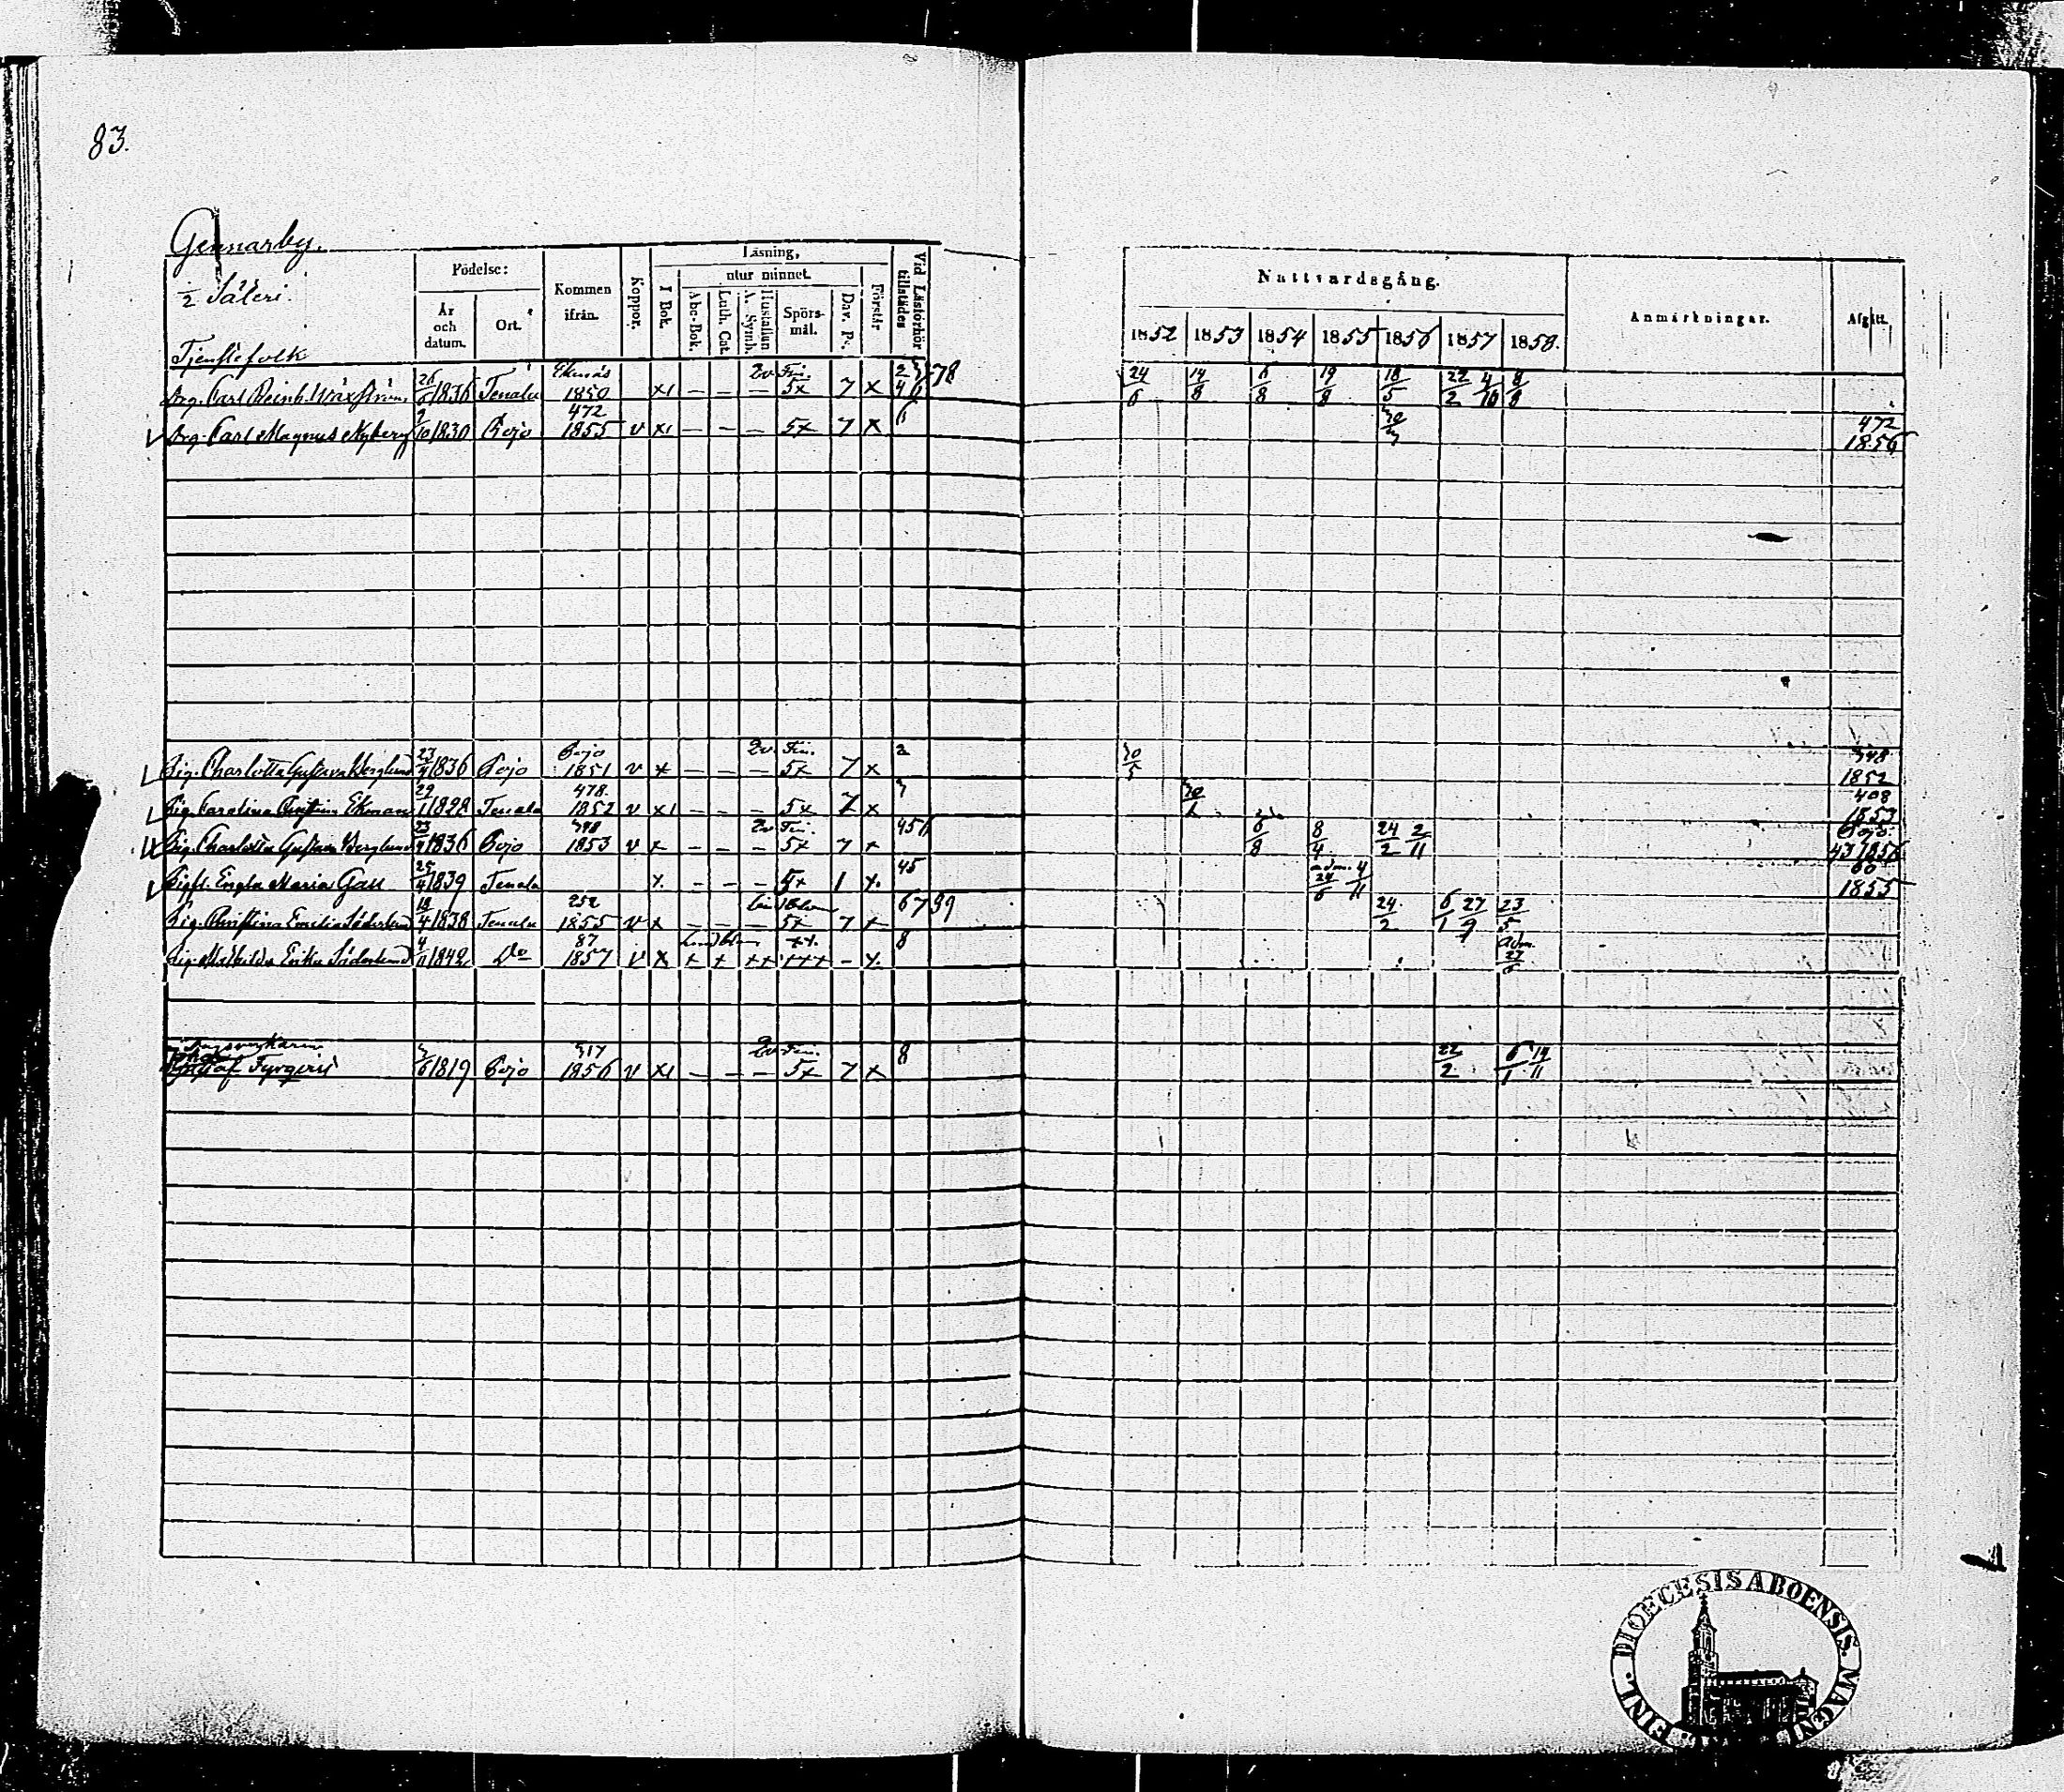 83.
Gennarby.
1/2 Säteri.
Tjenstefolk
Födelse:
År och datum.
Ort.
Kommen ifrån.
Koppor.
Läsning,
I Bok.
utur minnet.
Abc-Bok.
Luth. Cat.
Hustaflan A. Symb.
Spörs-mål.
Dav. Ps.
Förstår
Vid Läsförhör tillstädes
Nattvardsgång.
1852 1853 1854 1855 1856 1857 1858.
Anmärkningar.
Afgått.
Drg. Carl Reinh. Wäxström 1836 Tenala Ekenäs 1850 x1 — — — 5x 7 x 24/6 14/8 6/8 19/8 18/5 22/2 4/10 8/8
Drg. Carl Magnus Nyberg 9/10 1830 Pojo 472 1855 v x1 — — — 5x 7 x 6 472 1856
Pig. Charlotta Gustava Berglund 23/9 1836 Pojo Pojo 1851 v x — — — 5x 7 x 2 30/5 348 1852
Pig. Carolina Christina Ekman 29/1 1828 Tenala 478. 1852 v x1 — — — 5x 7 x 3 408 1853
Pig. Charlotta Gustava Berglund 23/9 1836 Pojo 398 1853 v x — — — 5x 7 x 456 6/8 8/4 24/2 2/11 Pojo. 43 1856
Pigfl. Engla Maria Gau 25/4 1839 Tenala x. — — — 5x 1 x. 45 adm. 24/6 4/11 60 1855
Pig. Christina Emilia Söderlund 18/4 1838 Tenala 252 1855 v x — — — 5x 7 x 6789 24/2 6/1 27/9 23/5
Pig. Mathilda Erika Söderlund 4/11 1842 Do 87 1857 v x + + ++ +++ — x. 8 adm. 27/6
Gustaf Fyrqvist 3/6 1819 Pojo 317 1856 v x1 — — — 5x 7 x 8 22/2 6/1 14/11
DIOECESIS ABOENSIS. MAGNI FINL.